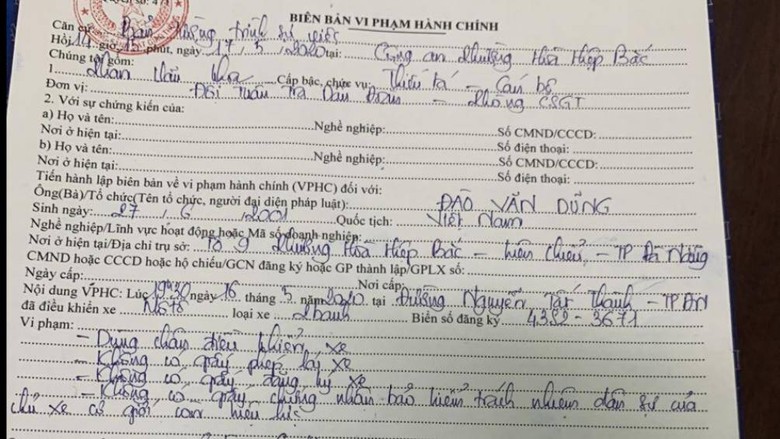 BIÊN BẢN VI PHẠM HÀNH CHÍNH
Căn cứ: Bản tường trình sự việc
Hồi 14 giờ 15 phút, ngày 17, 5, 2020 tại: Công an Phường Hoà Hiệp Bắc
Chúng tôi gồm:
1. Phan Cấp bậc, chức vụ: Thiếu tá – Cán bộ
Đơn vị: Đội Tuần Tra Dẫn Đoàn – Phòng CSGT
2. Với sự chứng kiến của:
a) Họ và tên: Nghề nghiệp: Số CMND/CCCD:
Nơi ở hiện tại: Số điện thoại:
b) Họ và tên: Nghề nghiệp: Số CMND/CCCD:
Nơi ở hiện tại: Số điện thoại:
Tiến hành lập biên bản về vi phạm hành chính (VPHC) đối với:
Ông(Bà)/Tổ chức(Tên tổ chức, người đại diện pháp luật): ĐÀO VĂN DŨNG
Sinh ngày: 27, 6, 2001 Quốc tịch: Việt Nam
Nghề nghiệp/Lĩnh vực hoạt động hoặc Mã số doanh nghiệp:
Nơi ở hiện tại/Địa chỉ trụ sở: Tổ 9 Phường Hoà Hiệp Bắc – Liên Chiểu – TP Đà Nẵng
CMND hoặc CCCD hoặc hộ chiếu/GCN đăng ký hoặc GP thành lập/GPLX số:
Ngày cấp: Nơi cấp:
Nội dung VPHC: Lúc 19h30 ngày 16 tháng 5 năm 2020 tại Đường Nguyễn Tất Thành – TP ĐN
đã điều khiển xe Môtô loại xe 2 bánh Biển số đăng ký 43S2 - 3671
Vi phạm:
– Dùng chân điều khiển xe
– Không có giấy phép lái xe
– Không có giấy đăng ký xe
– Không có giấy chứng nhận bảo hiểm trách nhiệm dân sự của
chủ xe cơ giới còn hiệu lực